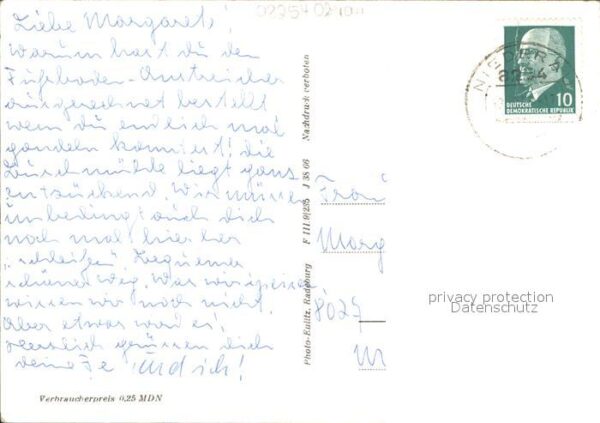 02254 0240
Liebe Margaret,
warum hast du den
Fußboden-Anstreicher
ausgerechnet bestellt
wenn du endlich mal
gondeln kannst! die
Buschmühle liegt ganz
entzückend. Wir müssen
unbedingt auch dich
noch mal hier her
"schleifen" bequemer
schöner Weg. Was wir speisen
wissen wir noch nicht.
Aber etwas wird es!
herzlich grüssen dich
deine Fe und ich!
Verbraucherpreis 0,25 MDN
Photo-Eulitz, Radeburg F III 9/235 J 35 66 Nachdruck verboten
NIEDERA
8254
10
DEUTSCHE
DEMOKRATISCHE REPUBLIK
Frau
Marg
8027
privacy protection
Datenschutz